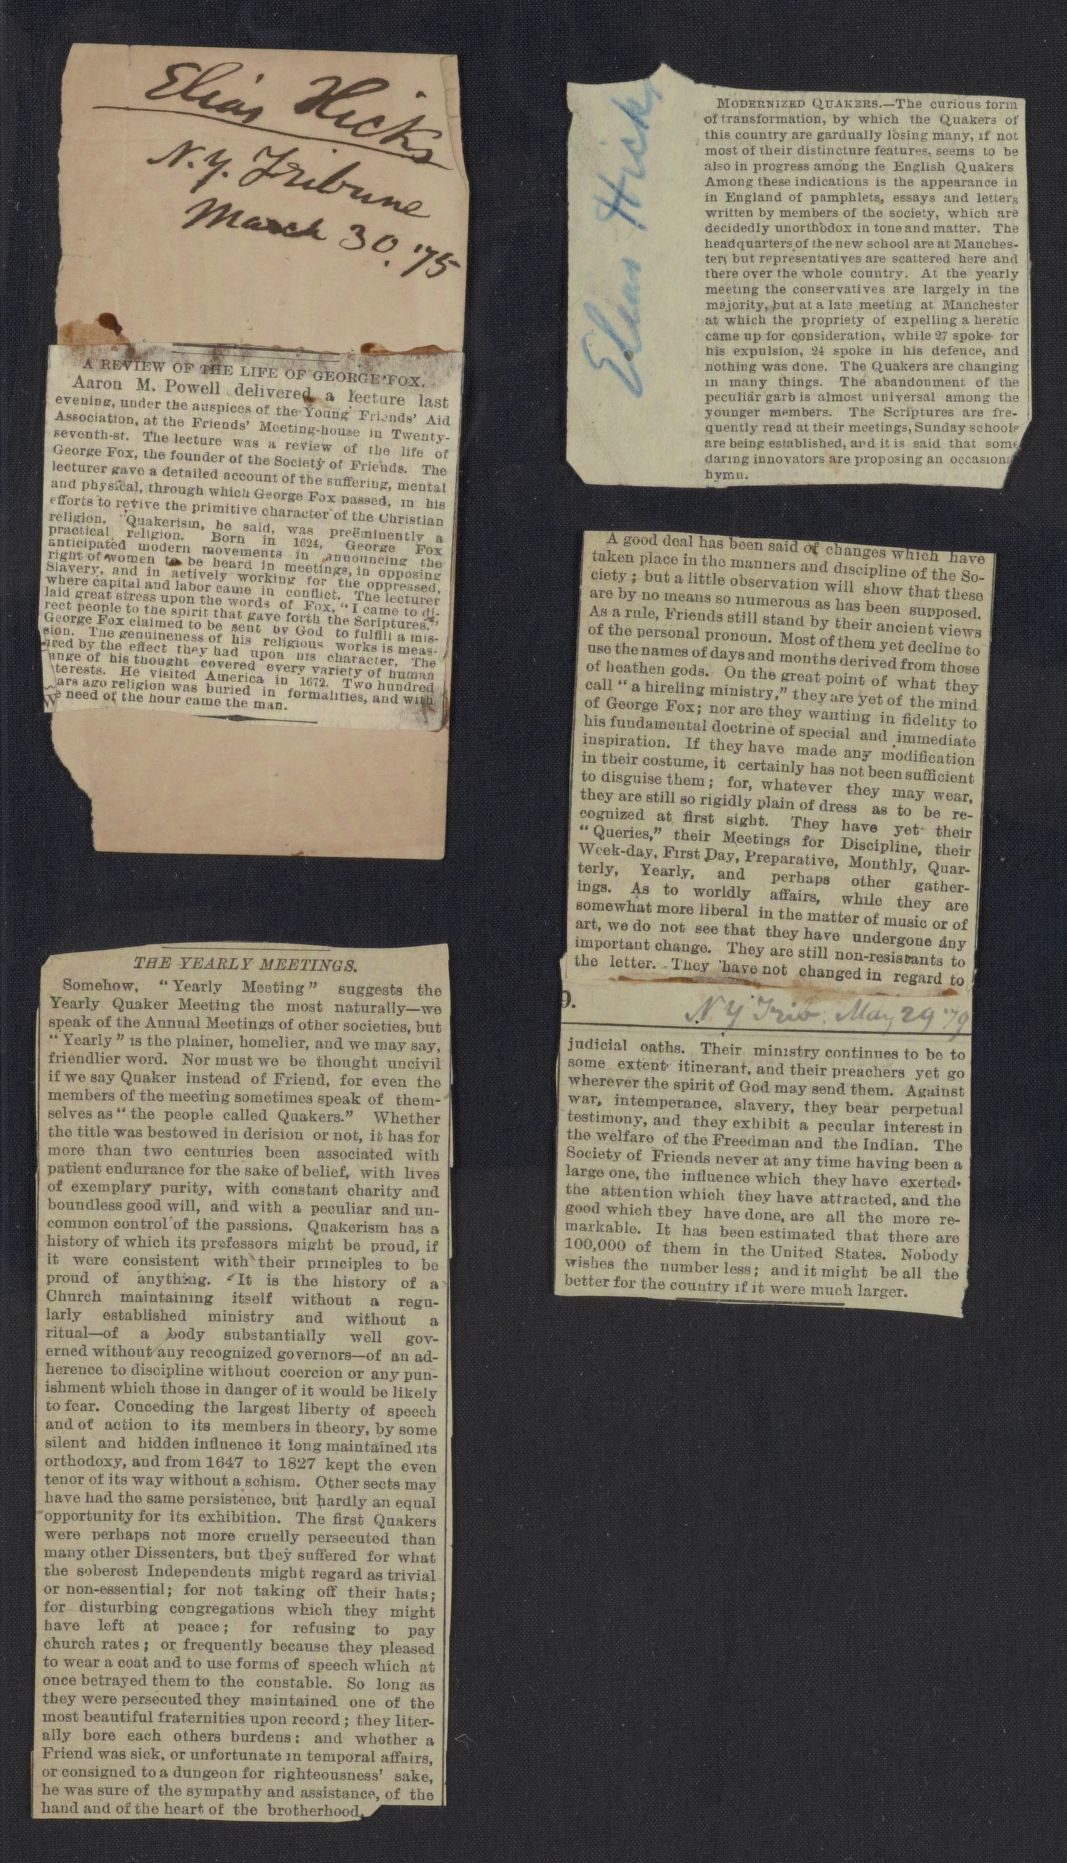 Elias Hicks
N.Y. Tribune
March 30. '75
A REVIEW OF THE LIFE OF GEORGE FOX.
Aaron M. Powell delivered a lecture last
evening, under the auspices of the Young Friends' Aid
Association, at the Friends' Meeting-house in Twenty-
seventh-st. The lecture was a review of the life of
George Fox, the founder of the Society of Friends. The
lecturer gave a detailed account of the suffering, mental
and physical, through which George Fox passed, in his
efforts to revive the primitive character of the Christian
religion. Quakerism, he said, was preëminently a
practical religion. Born in 1624, George Fox
anticipated modern movements in announcing the
right of women to be heard in meetings, in opposing
Slavery, and in actively working for the oppressed,
where capital and labor came in conflict. The lecturer
laid great stress upon the words of Fox, "I came to di-
rect people to the spirit that gave forth the Scriptures."
George Fox claimed to be sent by God to fulfill a mis-
sion. The genuineness of his religious works is meas-
ured by the effect they had upon his character. The
ange of his thought covered every variety of human
terests. He visited America in 1672. Two hundred
ars ago religion was buried in formalities, and with
e need of the hour came the man.
THE YEARLY MEETINGS.
Somehow, "Yearly Meeting" suggests the
Yearly Quaker Meeting the most naturally—we
speak of the Annual Meetings of other societies, but
"Yearly" is the plainer, homelier, and we may say,
friendlier word. Nor must we be thought uncivil
if we say Quaker instead of Friend, for even the
members of the meeting sometimes speak of them-
selves as "the people called Quakers." Whether
the title was bestowed in derision or not, it has for
more than two centuries been associated with
patient endurance for the sake of belief, with lives
of exemplary purity, with constant charity and
boundless good will, and with a peculiar and un-
common control of the passions. Quakerism has a
history of which its professors might be proud, if
it were consistent with their principles to be
proud of anything. It is the history of a
Church maintaining itself without a regu-
larly established ministry and without a
ritual—of a body substantially well gov-
erned without any recognized governors—of an ad-
herence to discipline without coercion or any pun-
ishment which those in danger of it would be likely
to fear. Conceding the largest liberty of speech
and of action to its members in theory, by some
silent and hidden influence it long maintained its
orthodoxy, and from 1647 to 1827 kept the even
tenor of its way without a schism. Other sects may
have had the same persistence, but hardly an equal
opportunity for its exhibition. The first Quakers
were perhaps not more cruelly persecuted than
many other Dissenters, but they suffered for what
the soberest Independents might regard as trivial
or non-essential; for not taking off their hats;
for disturbing congregations which they might
have left at peace; for refusing to pay
church rates; or frequently because they pleased
to wear a coat and to use forms of speech which at
once betrayed them to the constable. So long as
they were persecuted they maintained one of the
most beautiful fraternities upon record; they liter-
ally bore each others burdens: and whether a
Friend was sick, or unfortunate in temporal affairs,
or consigned to a dungeon for righteousness' sake,
he was sure of the sympathy and assistance, of the
hand and of the heart of the brotherhood.
Elias Hicks
MODERNIZED QUAKERS.—The curious form
of transformation, by which the Quakers of
this country are gardually losing many, if not
most of their distincture features, seems to be
also in progress among the English Quakers
Among these indications is the appearance in
in England of pamphlets, essays and letters
written by members of the society, which are
decidedly unorthodox in tone and matter. The
headquarters of the new school are at Manches-
ter, but representatives are scattered here and
there over the whole country. At the yearly
meeting the conservatives are largely in the
majority, but at a late meeting at Manchester
at which the propriety of expelling a heretic
came up for consideration, while 27 spoke for
his expulsion, 24 spoke in his defence, and
nothing was done. The Quakers are changing
in many things. The abandonment of the
peculiar garb is almost universal among the
younger members. The Scriptures are fre-
quently read at their meetings, Sunday schools
are being established, and it is said that some
daring innovators are proposing an occasiona
hymn.
A good deal has been said of changes which have
taken place in the manners and discipline of the So-
ciety; but a little observation will show that these
are by no means so numerous as has been supposed.
As a rule, Friends still stand by their ancient views
of the personal pronoun. Most of them yet decline to
use the names of days and months derived from those
of heathen gods. On the great point of what they
call "a hireling ministry," they are yet of the mind
of George Fox; nor are they wanting in fidelity to
his fundamental doctrine of special and immediate
inspiration. If they have made any modification
in their costume, it certainly has not been sufficient
to disguise them; for, whatever they may wear,
they are still so rigidly plain of dress as to be re-
cognized at first sight. They have yet their
"Queries," their Meetings for Discipline, their
Week-day, First Day, Preparative, Monthly, Quar-
terly, Yearly, and perhaps other gather-
ings. As to worldly affairs, while they are
somewhat more liberal in the matter of music or of
art, we do not see that they have undergone any
important change. They are still non-resistants to
the letter. They have not changed in regard to
9.
N.Y Trib. May 29 '79
judicial oaths. Their ministry continues to be to
some extent itinerant, and their preachers yet go
wherever the spirit of God may send them. Against
war, intemperance, slavery, they bear perpetual
testimony, and they exhibit a pecular interest in
the welfare of the Freedman and the Indian. The
Society of Friends never at any time having been a
large one, the influence which they have exerted,
the attention which they have attracted, and the
good which they have done, are all the more re-
markable. It has been estimated that there are
100,000 of them in the United States. Nobody
wishes the number less; and it might be all the
better for the country if it were much larger.